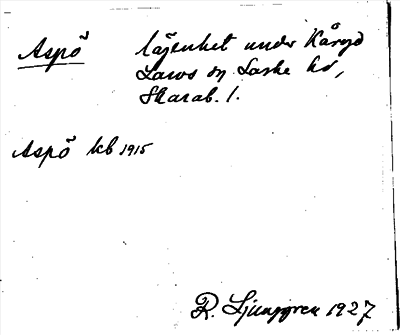 Aspö lägenhet under Kåryd
Laros sn Laske hd,
Skarab. l.
Aspö kb 1915
R. Ljunggren 1927